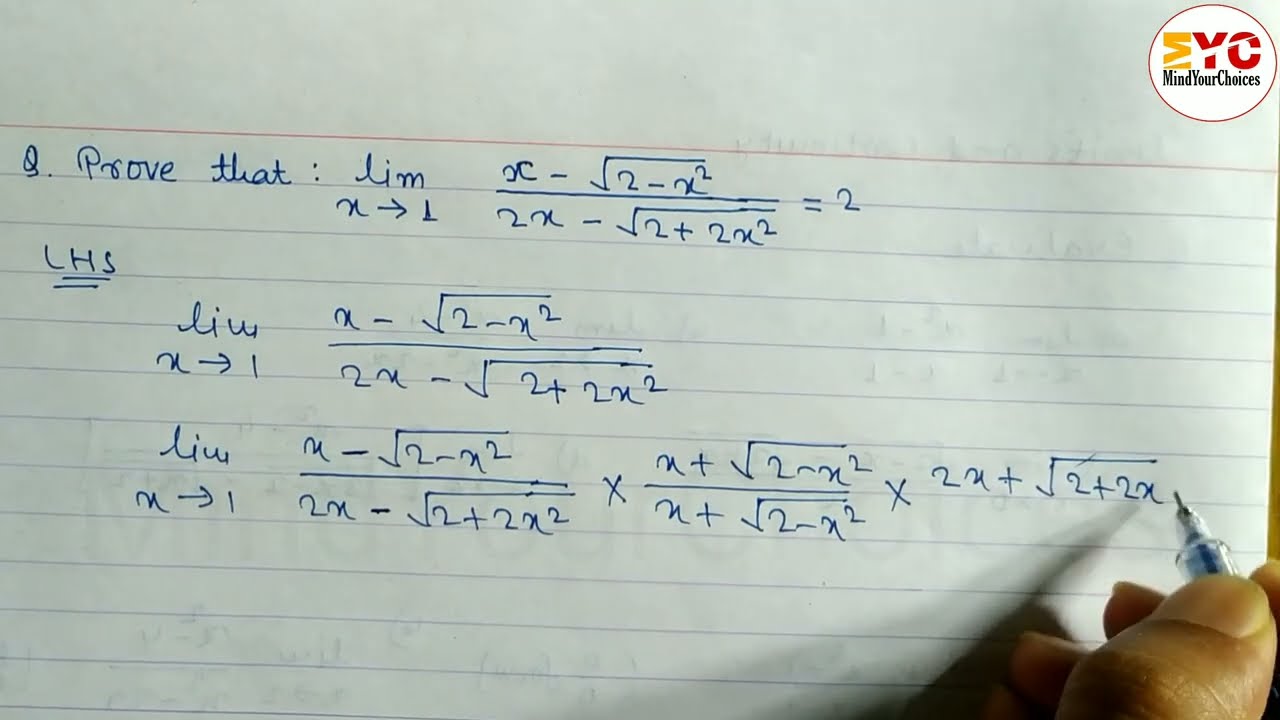 MYC
MindYourChoices
Q. Prove that : lim x→1 (x - √(2-x²))/(2x - √(2+2x²)) = 2
LHS
lim x→1 (x - √(2-x²))/(2x - √(2+2x²))
lim x→1 (x - √(2-x²))/(2x - √(2+2x²)) × (x + √(2-x²))/(x + √(2-x²)) × 2x + √(2+2x